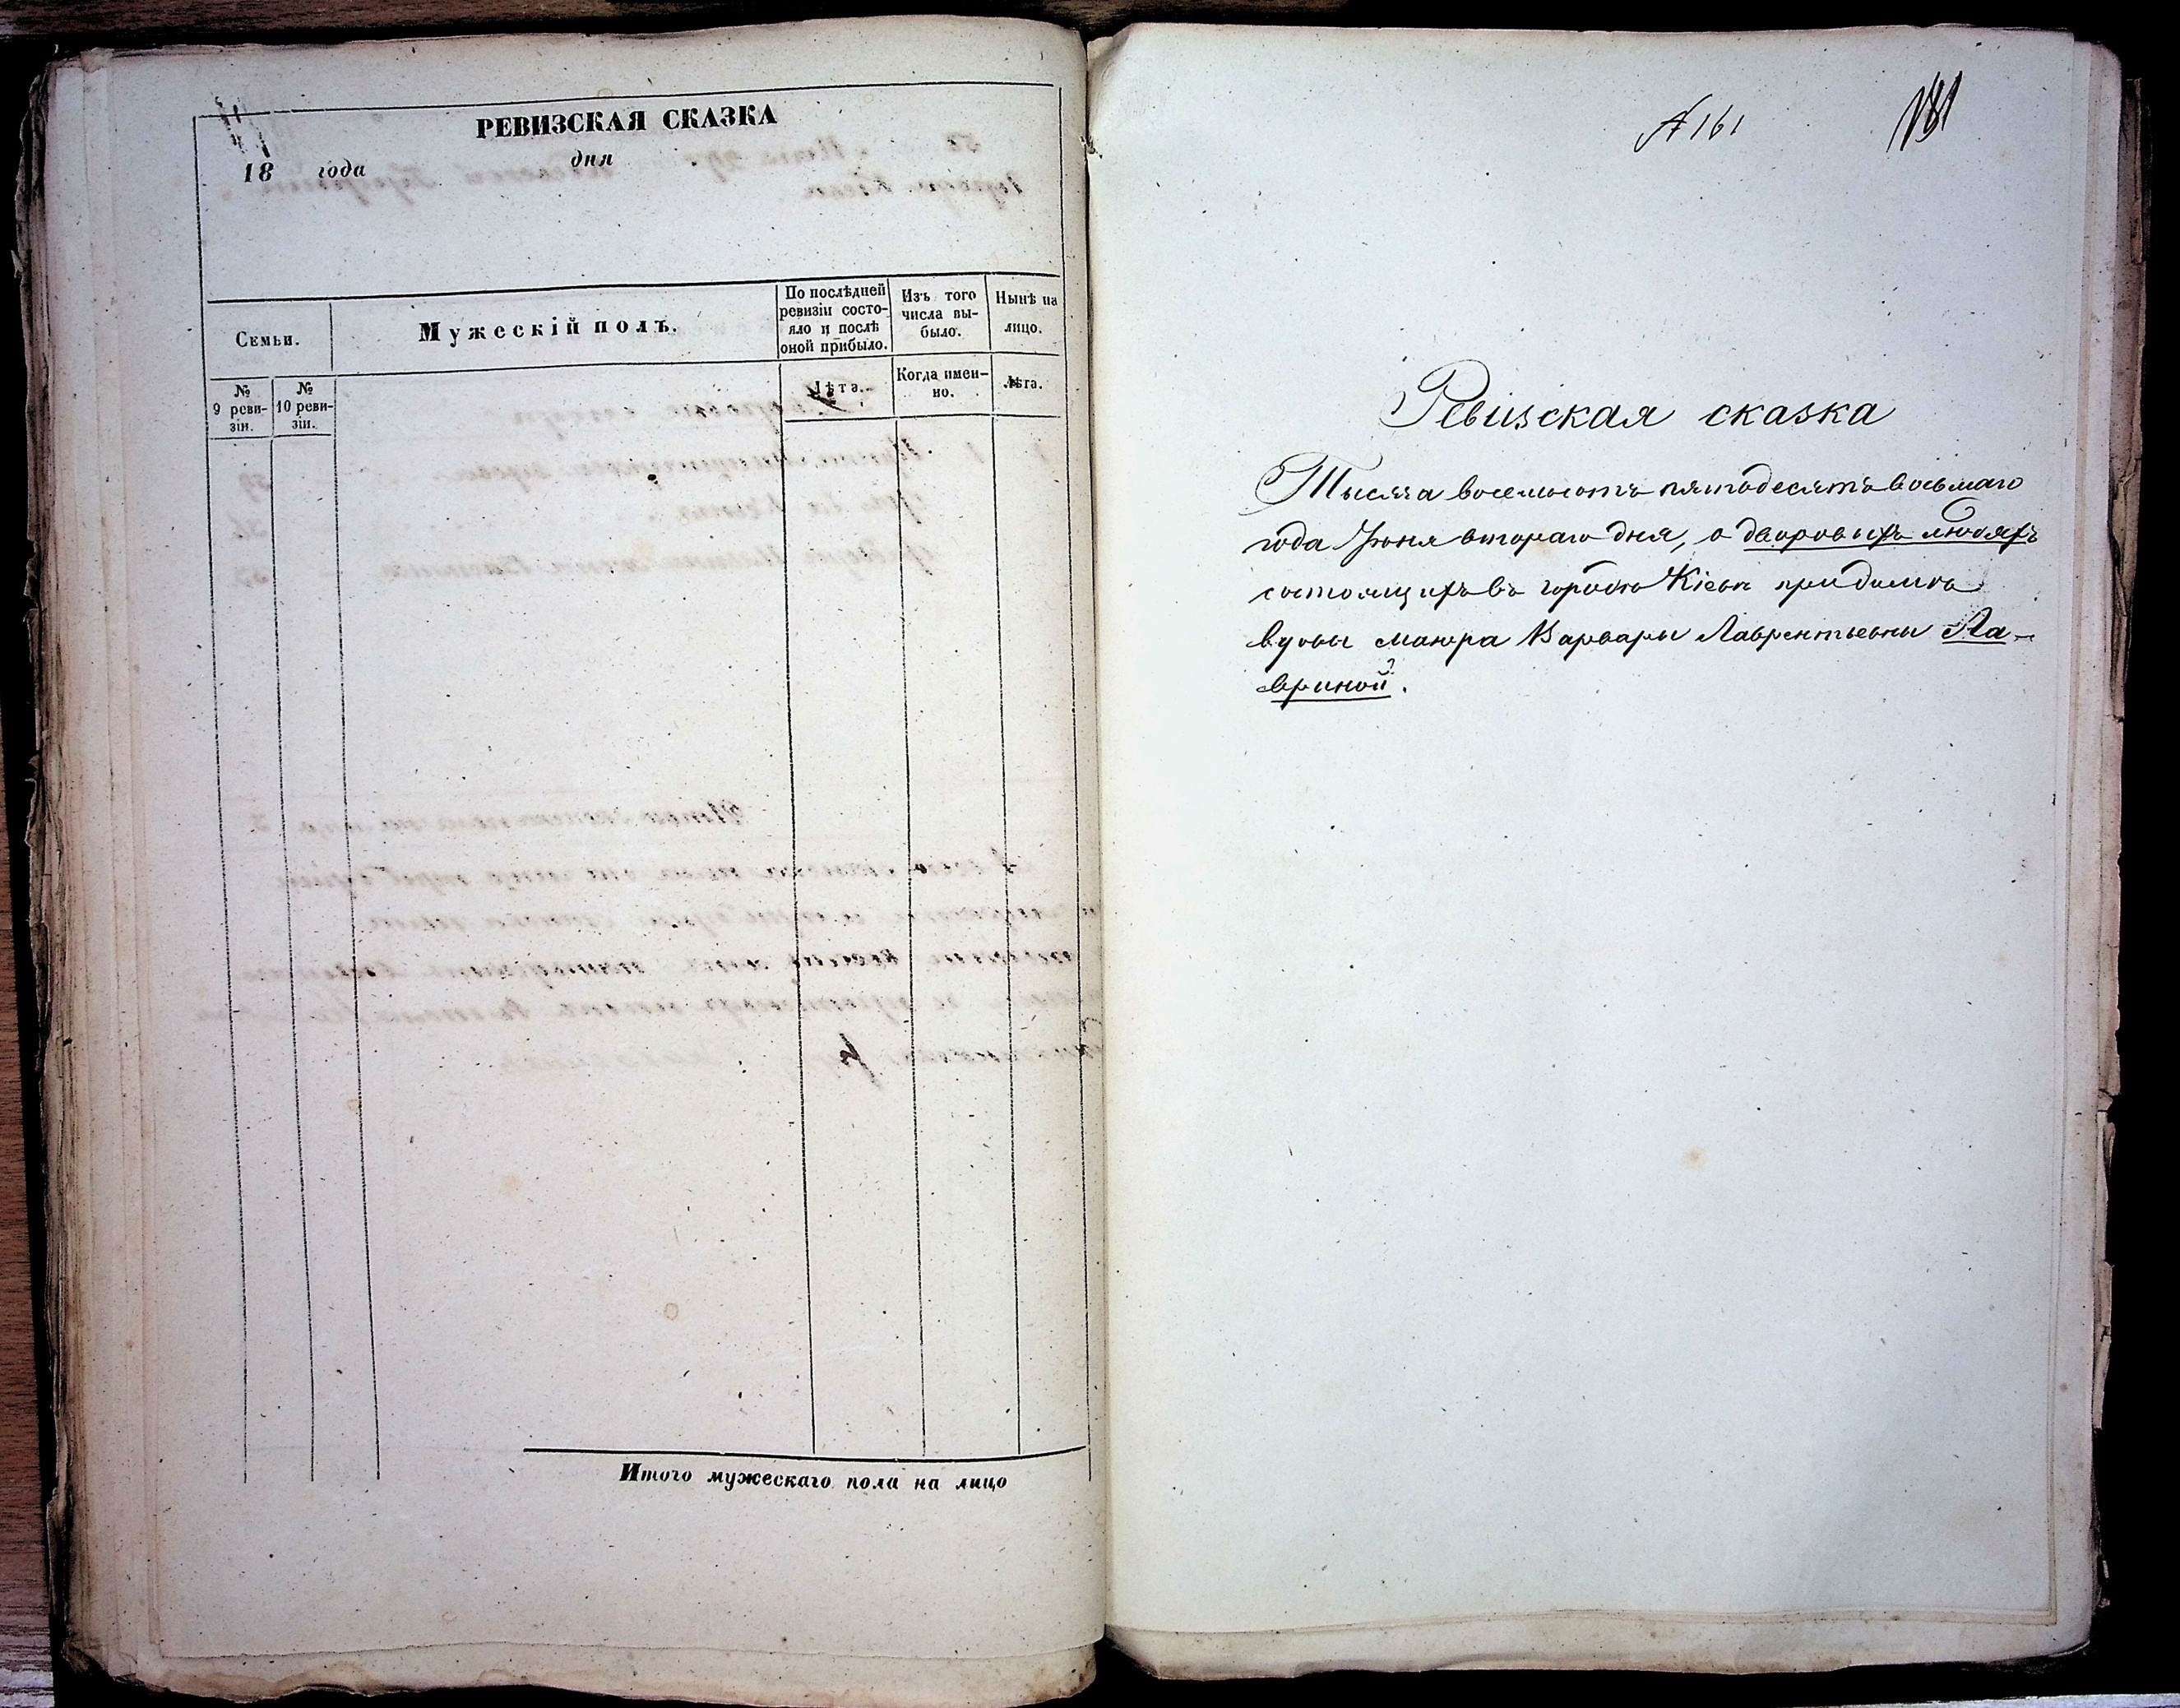 РЕВИЗСКАЯ СКАЗКА
18 года дня
Семьи.
Мужескій полъ.
По послѣдней
ревизіи состо-
яло и послѣ
оной прибыло.
Изъ того
числа вы-
было.
Нынѣ на
лицо.
№
9 реви-
зіи.
№
10 реви-
зіи.
Лѣта.
Когда имен-
но.
Лѣта.
Итого мужескаго пола на лицо
№ 161
Ревизская сказка
Тысяча восемьсотъ пятьдесятъ восьмаго
года Іюня втораго дня, о дворовыхъ людяхъ
состоящихъ въ городѣ Кіевѣ при домѣ
вдовы маіора Варвары Лаврентьевны Ла-
вриной.